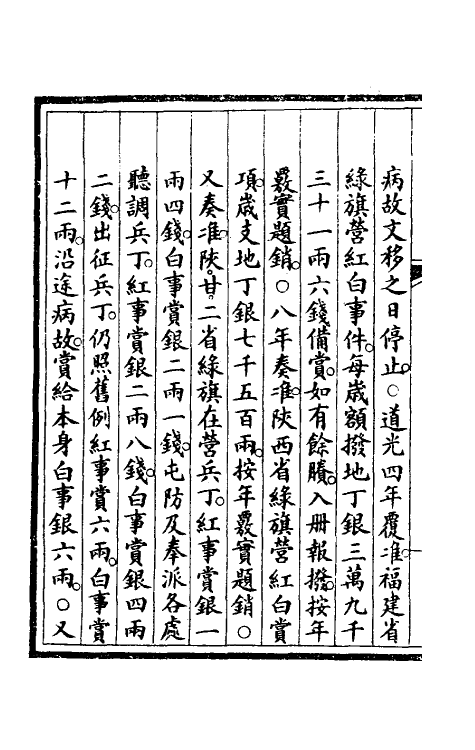 病故文移之日停止。○道光四年覆准。福建省
綠旗營紅白事件。每歲額撥地丁銀三萬九千
三十一兩六錢備賞。如有餘賸。入册報撥。按年
覈實題銷。○八年奏准。陝西省綠旗營紅白賞
項。歲支地丁銀七千五百兩。按年覈實題銷。○
又奏准。陝甘二省綠旗在營兵丁。紅事賞銀一
兩四錢。白事賞銀二兩一錢。屯防及奉派各處
聽調兵丁。紅事賞銀二兩八錢。白事賞銀四兩
二錢。出征兵丁。仍照舊例紅事賞六兩。白事賞
十二兩。沿途病故。賞給本身白事銀六兩。○又